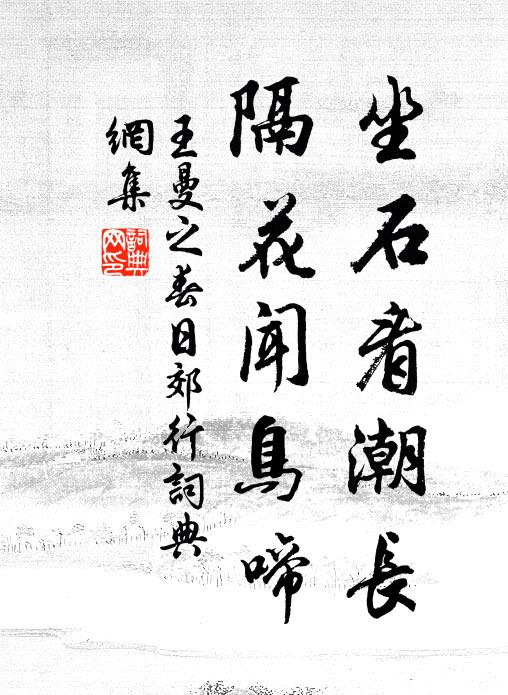 坐石看潮長
隔花聞鳥啼
王曼之春日郊行詞典
網集
詞典
网印